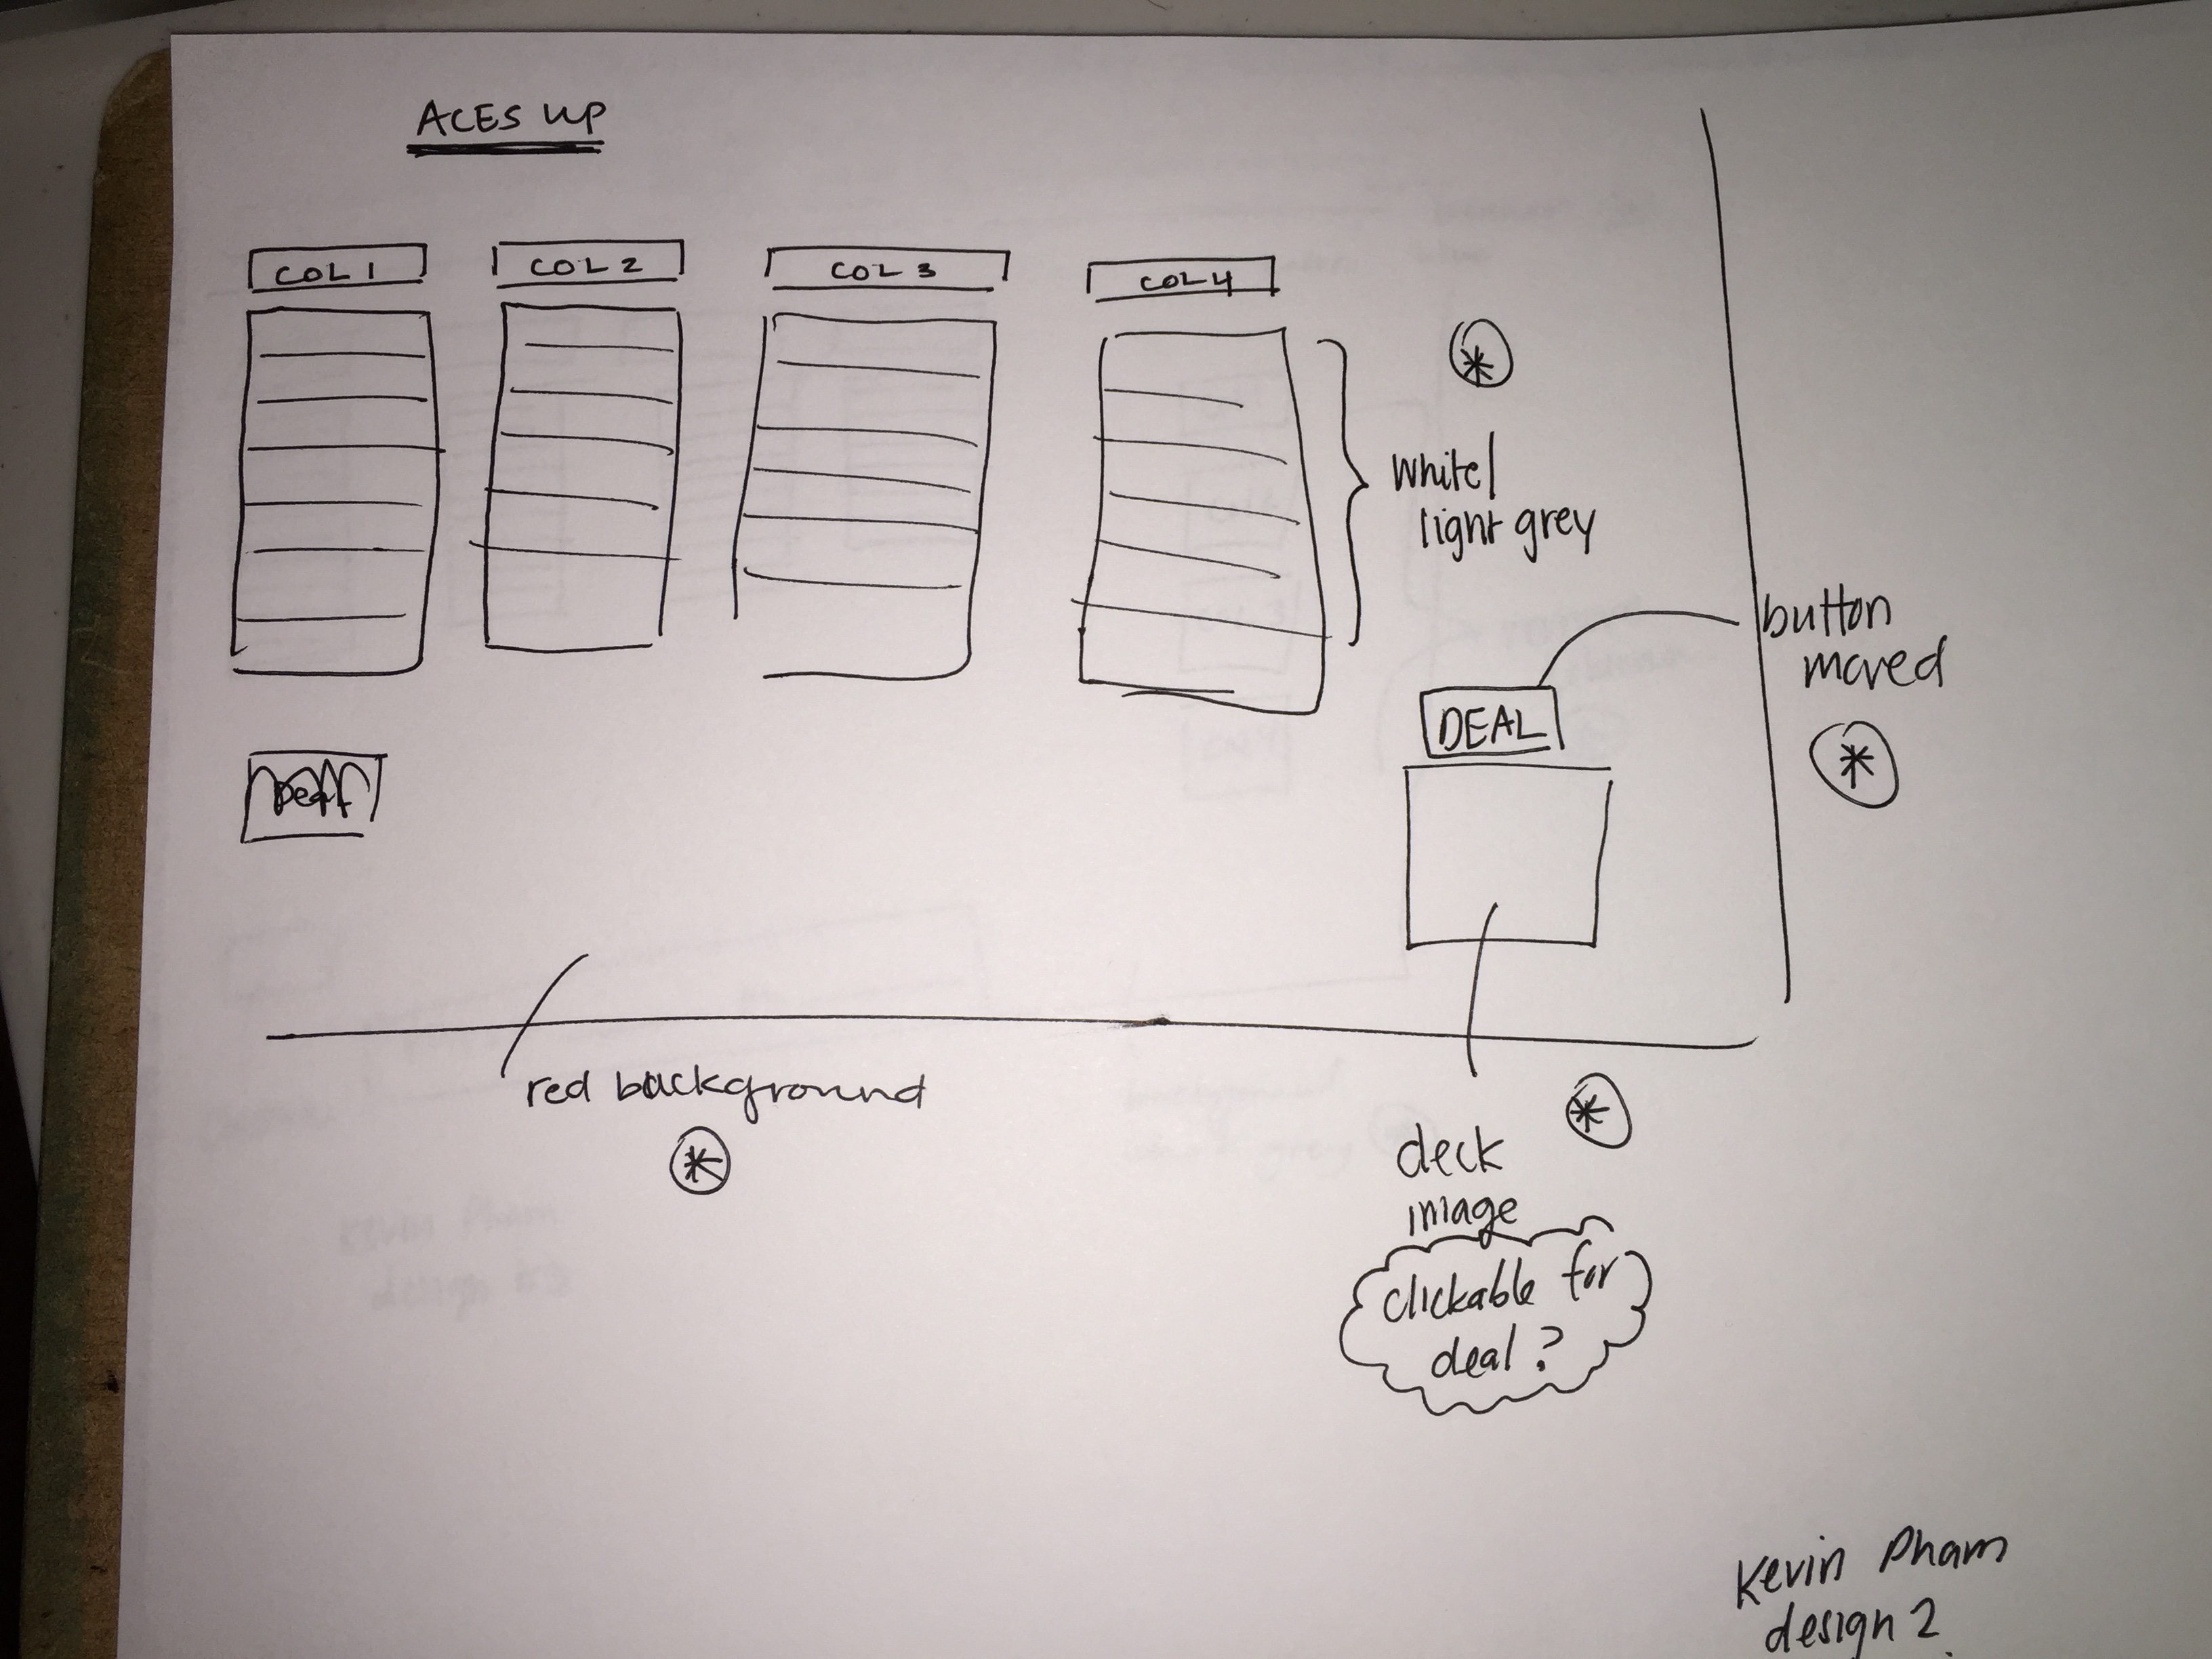 ACES UP
COL 1
COL 2
COL 3
COL 4
white/
light grey
button
moved
DEAL
red background
deck
image
clickable for
deal?
Kevin Pham
design 2